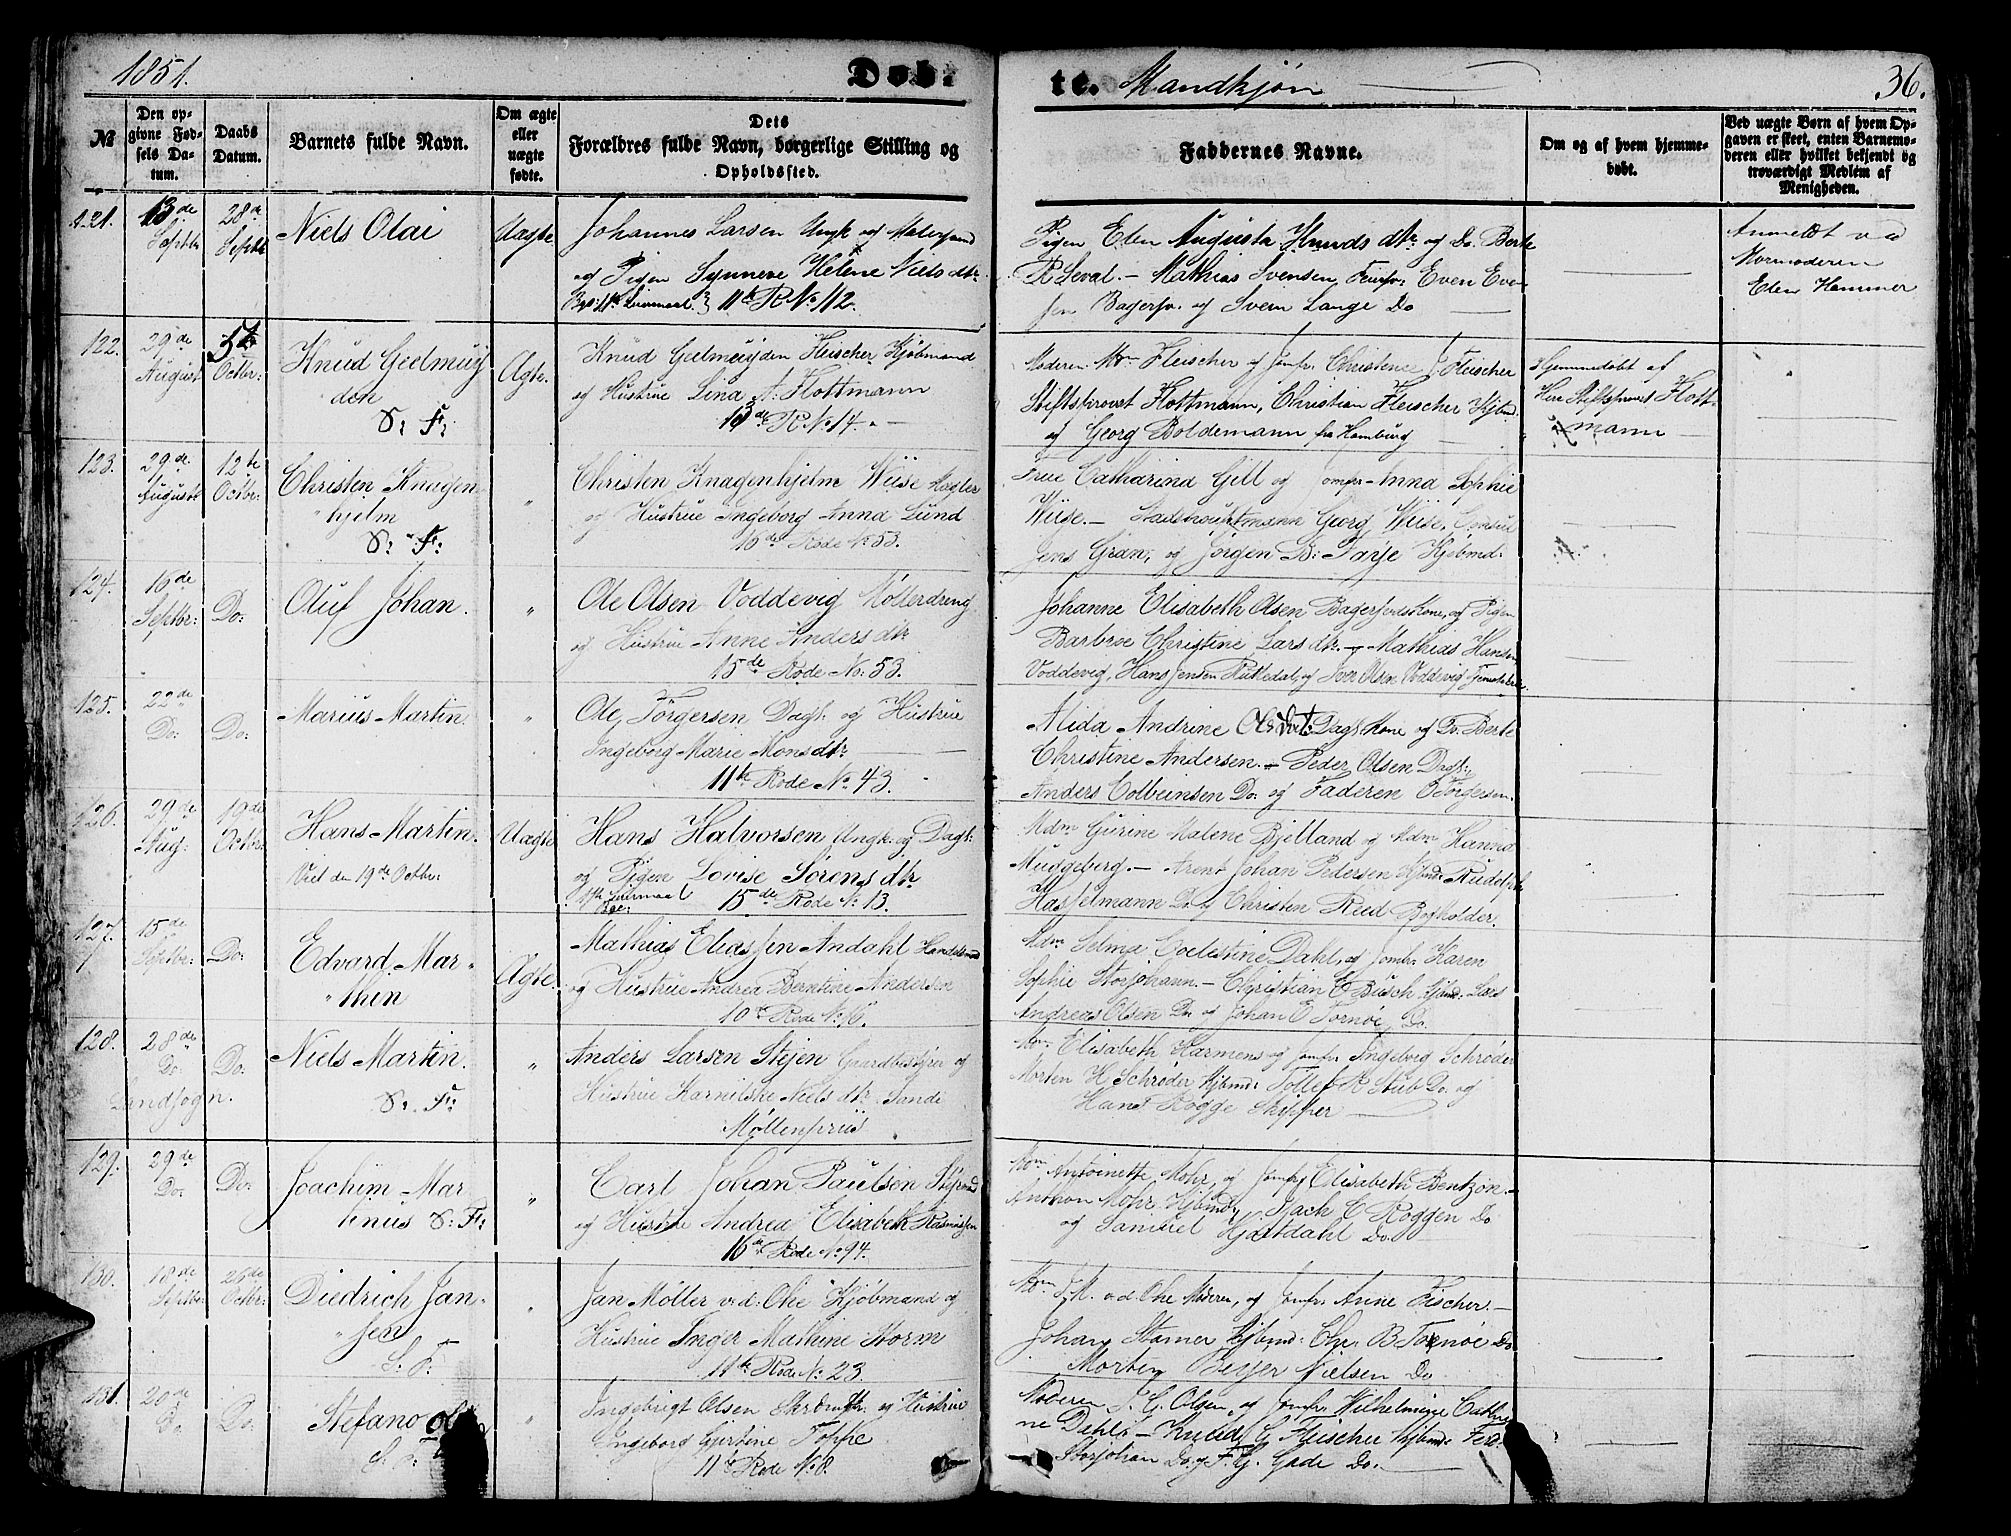 1851.
Døb-
te. Mandkjøn
36.
№
Den op-
givne Fød-
sels Da-
tum.
Daabs
Datum.
Barnets fulde Navn.
Om ægte
eller
uægte
fødte.
Dets
Forældres fulde Navn, borgerlige Stilling og
Opholdssted.
Faddernes Navne.
Om og af hvem hjemme-
døbt.
Ved uægte Børn af hvem Op-
gaven er skeet, enten Barnemo-
deren eller hvilket bekjendt og
troværdigt Medlem af
Menigheden.
121. 13de Septbr 28de Septbr
Niels Olai
Uægte
Johannes Larsen Ungk og Malersvend
og Pigen Synneve Helene Niels dtr.
11te R No 112.
Pigen Elen Augusta Knuds dtr og Do. Berte
R Leval. – Mathias Svensen, Even Even
sen Bagersv. og Svem Lange Do
Anmeldt ved
Mormoderen
Elen Hammer
122. 29de August 5te Octbr:
Knud Geelmuy
den
S: F:
Ægte.
Knud Geelmuyden Fleischer Kjøbmand
og Hustrue Lina A: Flottmann
13de R. No 14.
Moderen Mdm Fleischer og Jomfr Christene Fleischer
Stiftsprovst Flottmann, Christian Fleischer Kjbmd
og Georg Boldemann fra Hamburg
Hjemmedøbt af
Herr Stiftsprovst Flott-
mann
123. 29de August 12te Octbr:
Christen Knagen
hjelm
S: F:
"
Christen Knagenhjelm Wiise Mægler
og Hustrue Ingeborg Anna Lund
10de Rode No 53.
Frue Catharina Gill og Jomfr Anna Sophie
Wiise. – Stadshauptmann Georg Wiise, Consul
Jens Gran, og Jørgen B: Faye Kjøbmd.
124. 16de Septbr: Do:
Oluf Johan.
"
Ole Olsen Voddevig Møllerdreng
og Hustrue Anne Anders dtr
15de Rode No: 53.
Johanne Elisabeth Olsen Kone, og Pigen
Barbroe Christine Lars dtr. – Mathias Hansen
Voddevig, Hans Jensen og Iver Olsen Voddevig
125. 22de Do: Do:
Marius Martin
"
Ole Törgersen Dagk: og Hustrue
Ingeborg Marie Mons dtr
11te Rode No 43.
Alida Andrine Ols dot: Dagk Kone og Do. Berte
Christine Andersen. – Peder Olsen Dagk:
Anders Colbeinsen Do. og Faderen O Törgersen.
126. 29de Aug: 19de Octbr:
Hans Martin.
Viet den 19de Octbr:
Uægte
Hans Halvorsen Ungk. og Dagk:
og Pigen Lovise Sørens dtr
15de Rode No 13.
Mdm Gurine Malene Bjelland og Mdm Hanna
Muggeberg. – Arent Johan Pedersen Kjbmd Rudolph
Hasselmann Do og Christen Reed Bogholder.
127. 15de Septbr: Do:
Edvard Mar
thin
Ægte.
Mathias Eliassen Andahl Handelsmd
og Hustrue Andrea Berntine Andersen
10de Rode No 6.
Mdm Selma Coelestine Dahl, og Jomfr. Karen
Sophie Storjohann. – Christian C Büsch Kjbmd. Lars
Andreas Olsen Do og Johan E Tornøe, Do.
128. 28de Do: Do:
Landsogn.
Niels Martin.
S: F:
"
Anders Larsen Stejen Gaardbestyrer og
Hustrue Karnilske Niels dtr. Sande
Møllenpriis
Mdm Elisabeth Harmens og Jomfr Ingeborg Schrøder
Morten H Schrøder Kjbmd: Tollef R Stub Do. og
Hans Rogge Skipper
129. 29de Do: Do:
Joachim Mar
tinus S: F:
"
Carl Johan Paulsen
og Hustrue Andrea Elisabeth Rasmussen
16de Rode No 94.
Mdm Antoinette Mohr, og Jomfr Elisabeth Bentzon. –
Mohr Kjbmd: C Roggen Do
og Samuel Hjortdahl Do.
130. 18de Septbr: 26de Octbr:
Diedrich Jan
sen
S. F.
"
Jan Møller v: d: Ohe Kjøbmand og
Hustrue Inger Mathine Storm
11te Rode No 23.
Mdm I. M. v. d. Ohe Moderen, og Jomfr. Anne Fischer. –
Johan Kjbmd: Chr. B Tornøe Do
Morten Beyer Nielsen Do.
131. 20de Do Do
Stefano
"
Ingebrigt Olsen og Hustrue
Ingeborg Gjertine Foppe
11te Rode No 8.
Moderen I. G. Olsen, og Jomfr Wilhelmine Cathri
ne Dehlø – Knud G Fleischer Kjbmd:
Storjohan Do. og F. G. Gade Do.